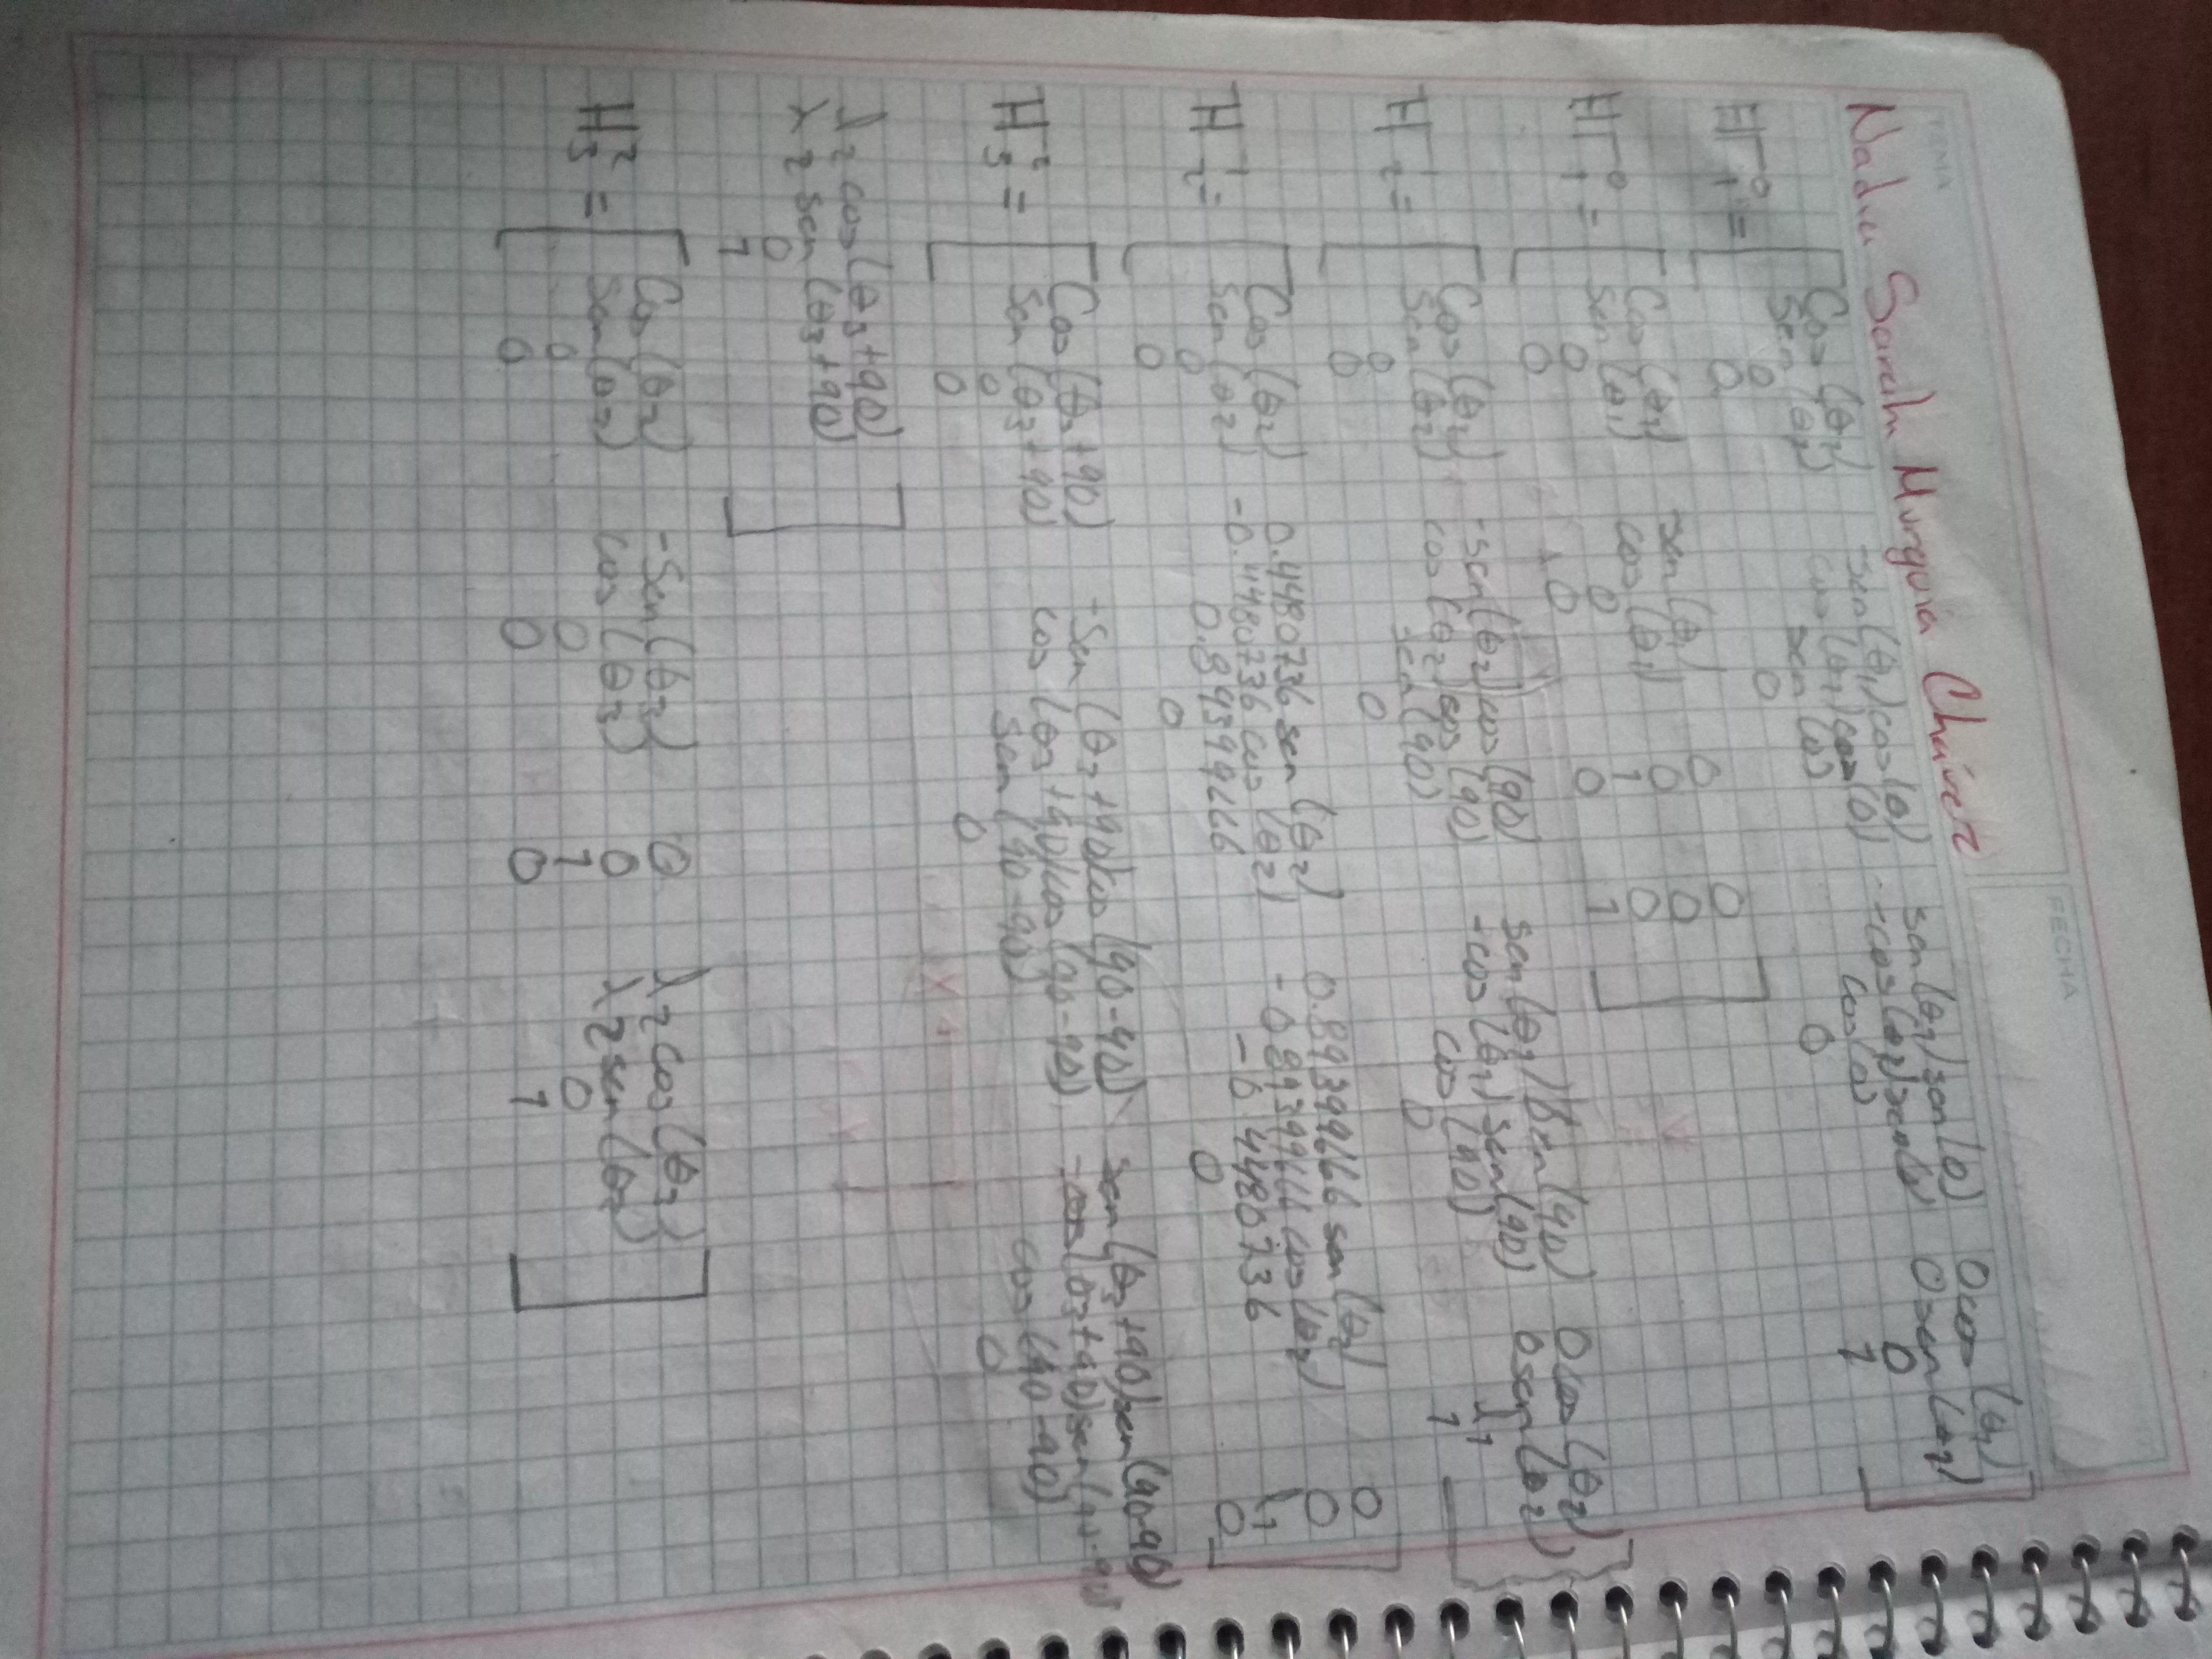 TEMA
FECHA
Nadia Sarahi Murguia Chávez
H⁰₁= [ Cos (θ₁) -sen (θ₁) cos (0) sen (θ₁) sen (0) 0 cos (θ₁)
Sen (θ₁) cos (θ₁) cos (0) -cos (θ₁) sen (0) 0 sen (θ₁)
0 sen (0) cos (0) 0
0 0 0 1 ]
H⁰₁= [ Cos (θ₁) sen (θ₁) 0 0
Sen (θ₁) cos (θ₁) 0 0
0 0 1 0
0 0 0 1 ]
H¹₂= [ Cos (θ₂) -sen (θ₂) cos (90) sen (θ₂) sen (90) 0 cos (θ₂)
Sen (θ₂) cos (θ₂) cos (90) -cos (θ₂) sen (90) 0 sen (θ₂)
0 sen (90) cos (90) L1
0 0 0 1 ]
H¹₂= [ Cos (θ₂) 0.4480736 sen (θ₂) 0.893996166 sen (θ₂) 0
Sen (θ₂) -0.4480736 cos (θ₂) -0.893996166 cos (θ₂) 0
0 0.89399666 -0.4480736 L1
0 0 0 0 ]
H²₃= [ Cos (θ₃+90) -Sen (θ₃+90) cos (90-90) sen (θ₃+90) sen (90-90)
Sen (θ₃+90) cos (θ₃+90) cos (90-90) -cos (θ₃+90) sen (90-90)
0 Sen (90-90) cos (90-90)
0 0 0
λ₂ cos (θ₃+90)
λ₂ sen (θ₃+90)
0
1 ]
H²₃= [ Cos (θ₂) -Sen (θ₂) 0 λ₂ cos (θ₂)
Sen (θ₂) cos (θ₂) 0 λ₂ sen (θ₂)
0 0 1 0
0 0 0 1 ]